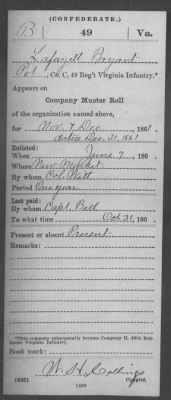 (CONFEDERATE.)
B 49 Va.
Lafayett Bryant
Pvt, Co. C, 49 Reg't Virginia Infantry.*
Appears on
Company Muster Roll
of the organization named above,
for Nov. & Dec., 1861
dated Dec. 31, 1861
Enlisted:
When June 7, 186 .
Where New Market
By whom Col.
Period One year
Last paid:
By whom Capt. Ball
To what time Oct. 31, 186 .
Present or absent Present
Remarks:
*This company subsequently became Company H, 49th Regiment Virginia Infantry.
Book mark:
W. H. Collings
(642) Copyist.